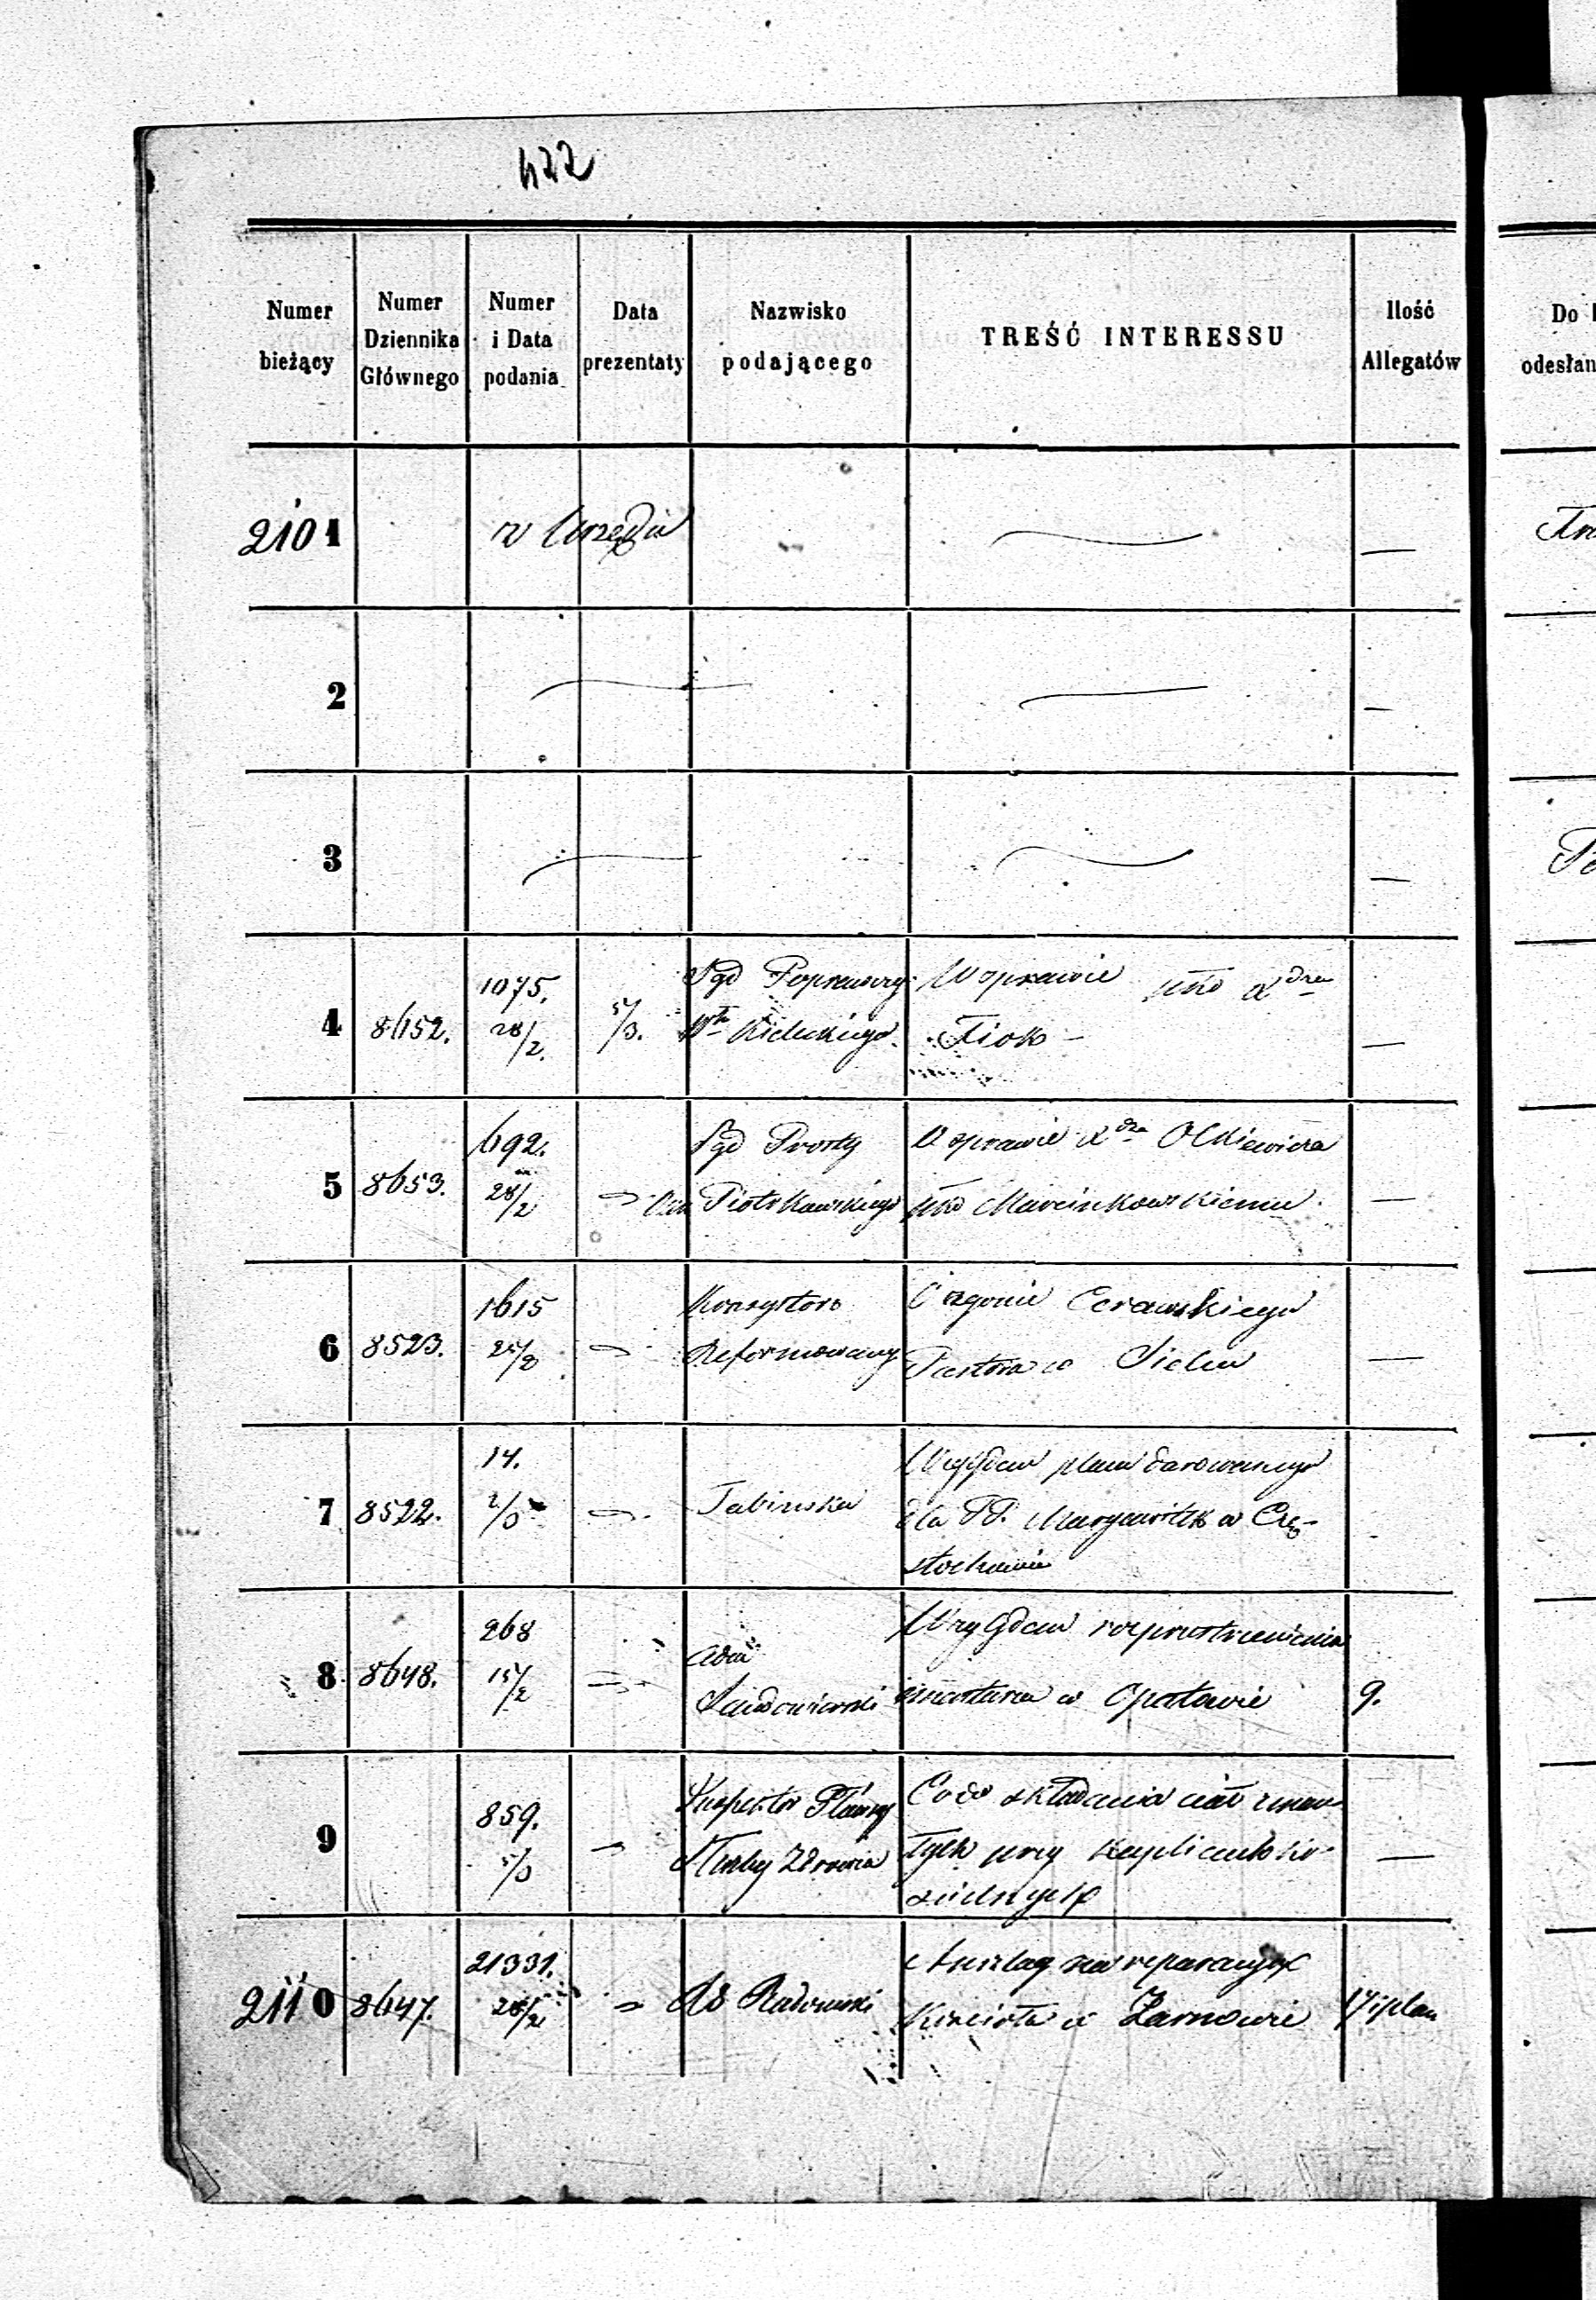 422
Numer bieżący | Numer Dziennika Głównego | Numer i Data podania | Data prezentaty | Nazwisko podającego | TREŚĆ INTERESSU | Ilość Allegatów | Do
odesłan
2101 | w Urzędzie | — | —
2 | — | — | —
3 | — | — | —
4 | 8652. | 1075. 28/2. | 5/3. | Sąd Poprawczy Kieleckiego | W sprawie Fiok — | —
5 | 8653. | 692. 28/2 | Sąd Prosty Piotrkowskiego | W sprawie Olkiewicza Marcinkowskiemu | —
6 | 8523. | 1615 | Konsystorz Reformowany | O zgonie Cerawskiego Pastora w Sielcu | —
7 | 8522. | 14. | Tabinska | Względem placu darowanego dla PP. Maryawitek w Czę-
stochowie
8 | 8648. | 268 15/2 | Adm Sandomierski | Względem rozprzestrzenienia cmentarza w Opatowie | 9.
9 | 859. 5/3 | Inspektor Główny Służby Zdrowia | Co do składania ciał zmar-
łych przy kaplicach ko-
ścielnych | —
2110 | 8647. | 21331. 28/2 | Rd Radomski | Anszlag na reparacyą Kościoła w Żarnowie | i plan